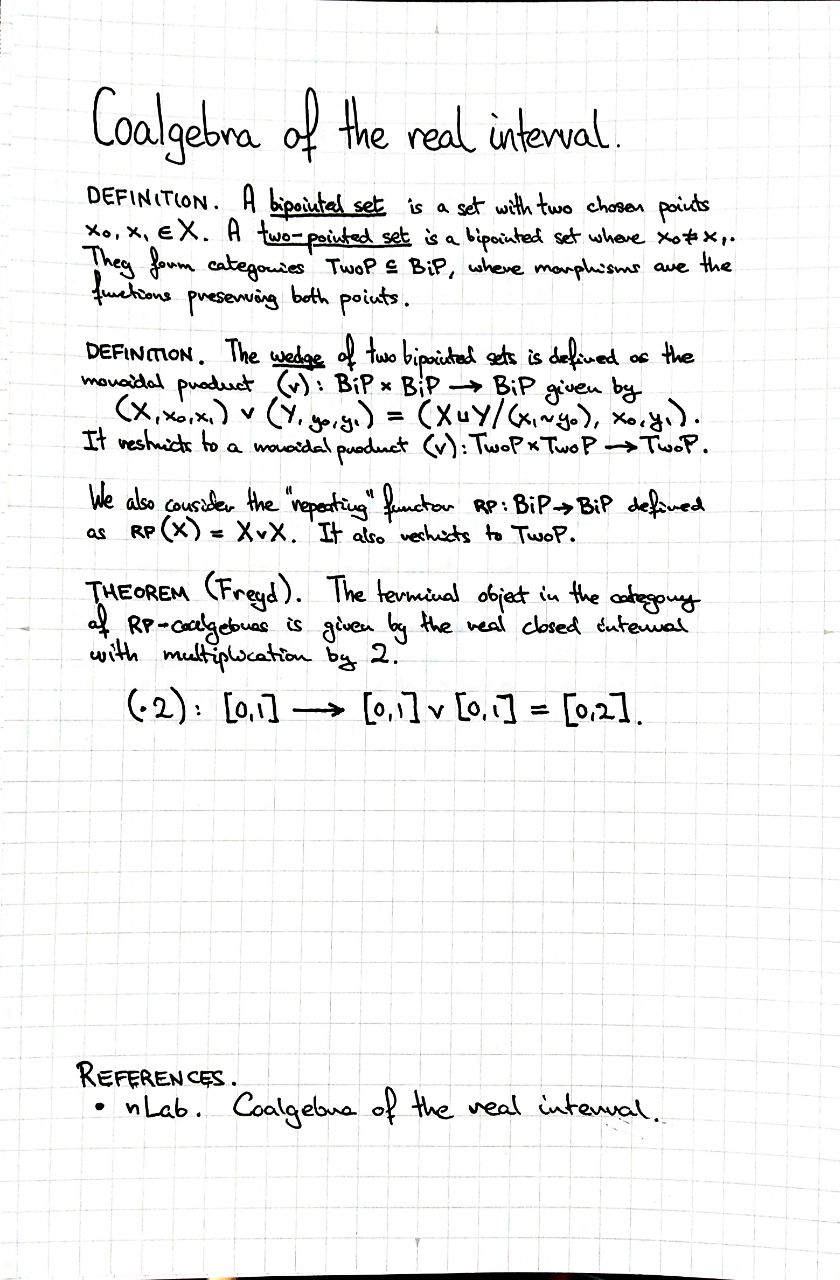 Coalgebra of the real interval.
DEFINITION. A bipointed set is a set with two chosen points
x₀, x₁ ∈ X. A two-pointed set is a bipointed set where x₀ ≠ x₁.
They form categories TwoP ⊆ BiP, where morphisms are the
functions preserving both points.
DEFINITION. The wedge of two bipointed sets is defined as the
monoidal product (∨): BiP × BiP → BiP given by
(X, x₀, x₁) ∨ (Y, y₀, y₁) = (X ⊔ Y/(x₁~y₀), x₀, y₁).
It restricts to a monoidal product (∨): TwoP × TwoP → TwoP.
We also consider the "repeating" functor RP: BiP → BiP defined
as RP(X) = X ∨ X. It also restricts to TwoP.
THEOREM (Freyd). The terminal object in the category
of RP-coalgebras is given by the real closed interval
with multiplication by 2.
(·2): [0,1] ⟶ [0,1] ∨ [0,1] = [0,2].
REFERENCES.
• nLab. Coalgebra of the real interval.